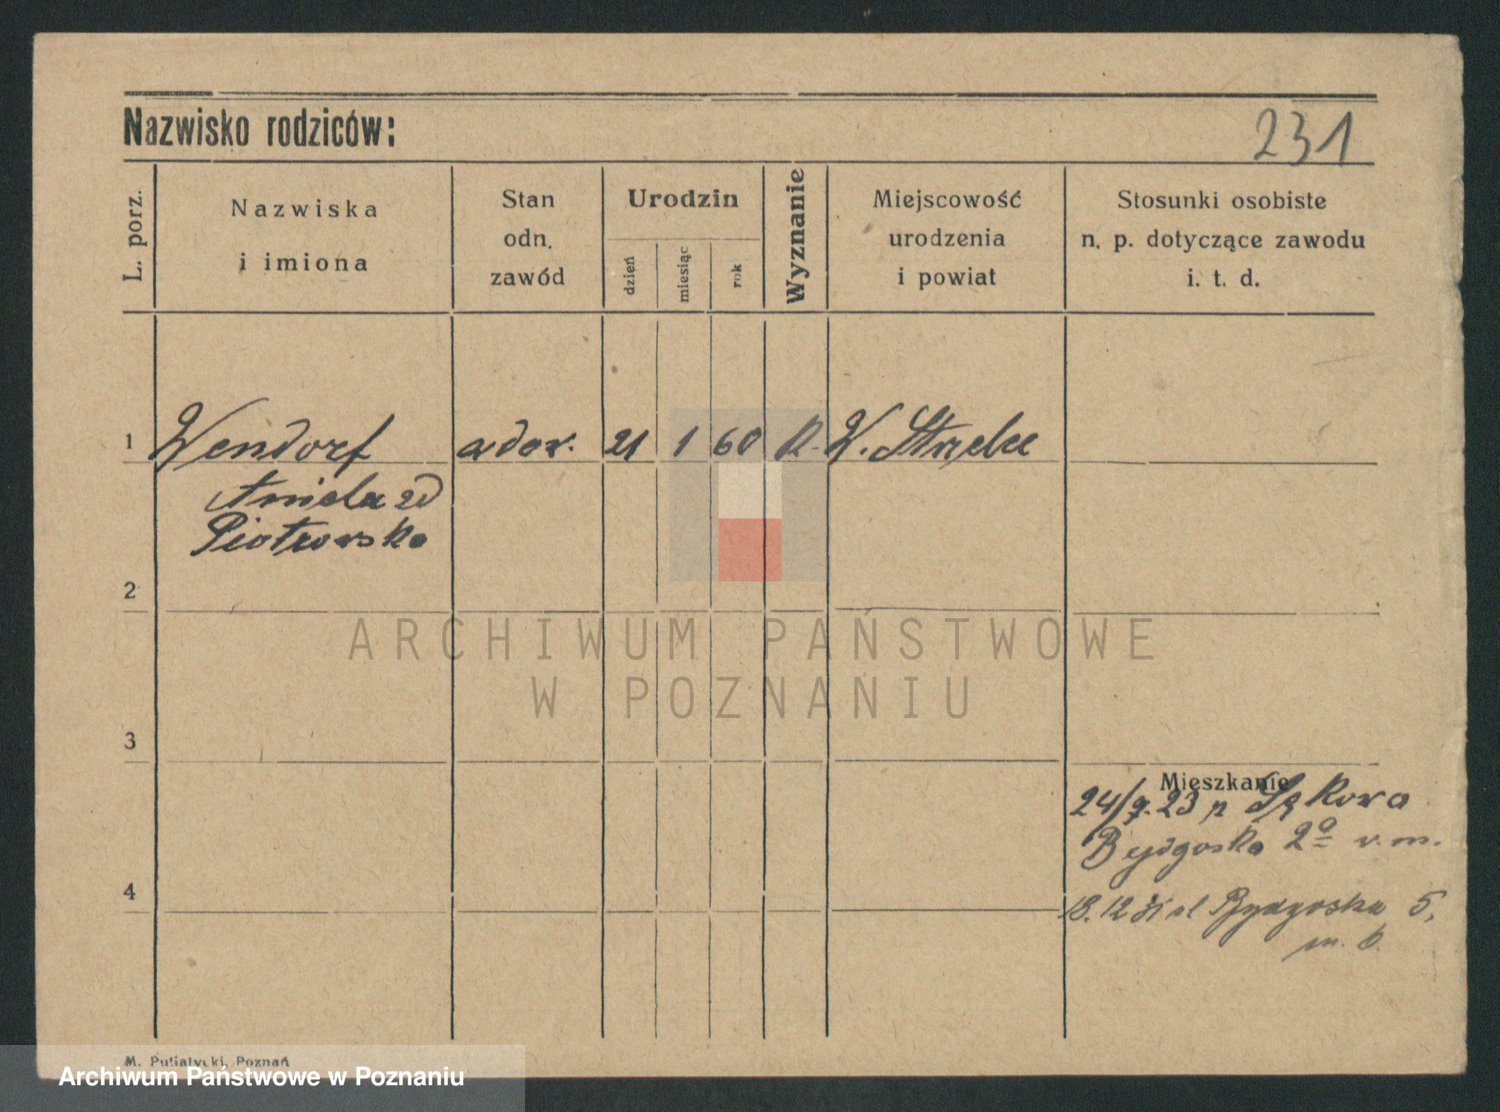 Nazwisko rodziców:
231
L. porz.
Nazwiska
i imiona
Stan
odn.
zawód
Urodzin
dzień
miesiąc
rok
Wyznanie
Miejscowość
urodzenia
i powiat
Stosunki osobiste
n. p. dotyczące zawodu
i. t. d.
1 Wendorf 21 1 60 W.
Aniela
Piotrowska
2
ARCHIWUM PAŃSTWOWE
W POZNANIU
3
Mieszkanie
24/9.23
Bydgoska 2
4
18.12 31 Bydgoska 5,
m. 6.
M. Putiatycki, Poznań
Archiwum Państwowe w Poznaniu